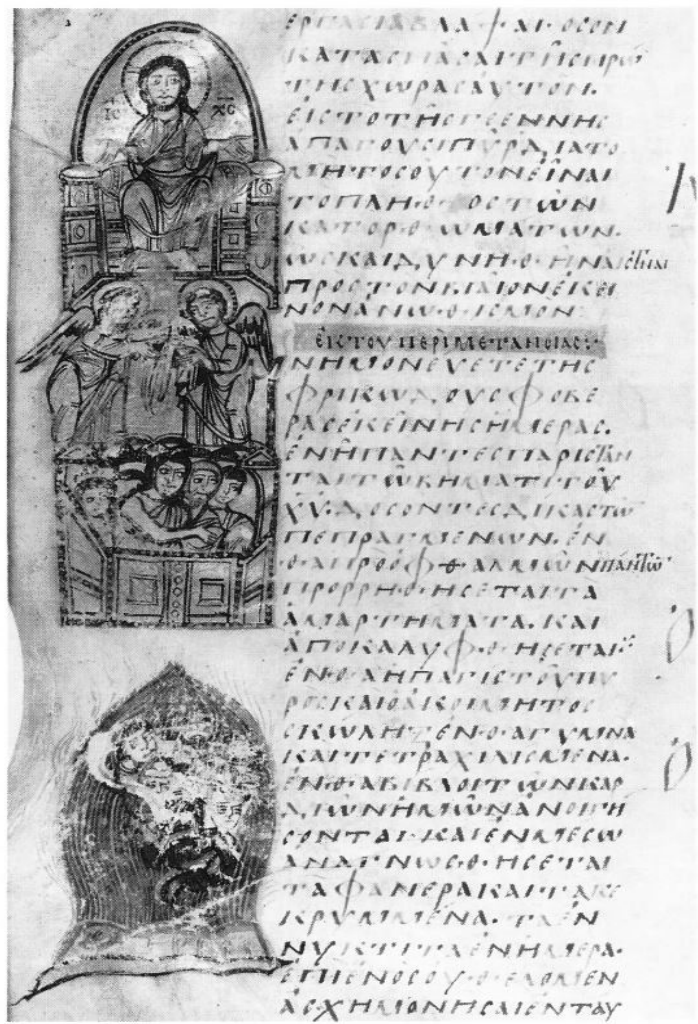 ΙC ΧC
ΚΑΤΑCΠΑCΑΙ ΤΗC ΠΡΩ
ΤΗC ΧΩΡΑC ΑΥΤΟΝ.
ΕΙC ΤΟ ΤΗC ΓΕΕΝΝΗC
ΑΠΑΓΟΥCΙ ΠΥΡ. ΔΙΑ ΤΟ
ΜΗ ΤΟCΟΥΤΟΝ ΕΙΝΑΙ
ΤΟ ΠΛΗΘΟC ΤΩΝ
ΚΑΤΟΡΘΩΜΑΤΩΝ.
ΩC ΚΑΙ ΔΥΝΗΘΗΝΑΙ
ΠΡΟC ΤΟΝ ΒΙΑΙΟΝ ΕΚΕΙ
ΝΟΝ
ΕΚ ΤΟΥ ΠΕΡΙ ΜΕΤΑΝΟΙΑC:
ΜΝΗΜΟΝΕΥΕΤΕ ΤΗC
ΦΡΙΚΩΔΟΥC ΦΟΒΕ
ΡΑC ΕΚΕΙΝΗC ΗΜΕΡΑC.
ΕΝ Η ΠΑΝΤΕC
ΤΩ ΒΗΜΑΤΙ ΤΟΥ
ΧΥ. ΔΟCΟΝΤΕC ΔΙΚΑC ΤΩ
ΠΕΠΡΑΓΜΕΝΩΝ. ΕΝ
ΘΑ ΠΡΟ ΟΦΘΑΛΜΩΝ ΠΑΝΤΩ
ΠΡΟΡΡΗΘΗCΕΤΑΙ ΤΑ
ΑΜΑΡΤΗΜΑΤΑ. ΚΑΙ
ΑΠΟΚΑΛΥΦΘΗCΕΤΑΙ:
ΕΝΘΑ Η ΠΑΓΙC ΤΟΥ ΠΥ
ΡΟC ΚΑΙ Ο ΑΚΟΙΜΗΤΟC
CΚΩΛΗΞ ΕΝΘΑ ΓΥΜΝΑ
ΚΑΙ ΤΕΤΡΑΧΙΛΙCΜΕΝΑ.
ΕΝΘΑ ΒΙΒΛΟΙ ΤΩΝ ΚΑΡ
ΔΙΩΝ ΗΜΩΝ ΑΝΟΙΓΗ
CΟΝΤΑΙ. ΚΑΙ ΕΝ ΜΕCΩ
ΑΝΑΓΝΩCΘΗCΕΤΑΙ
ΤΑ ΦΑΝΕΡΑ ΚΑΙ ΤΑ ΚΕ
ΚΡΥΜΜΕΝΑ. ΤΑ ΕΝ
ΝΥΚΤΙ ΤΑ ΕΝ ΗΜΕΡΑ.
ΕΠΙ ΕΝΟC ΟΥ ΘΕΛΟΜΕΝ
ΑCΧΗΜΟΝΗCΑΙ ΕΝΤΑΥ